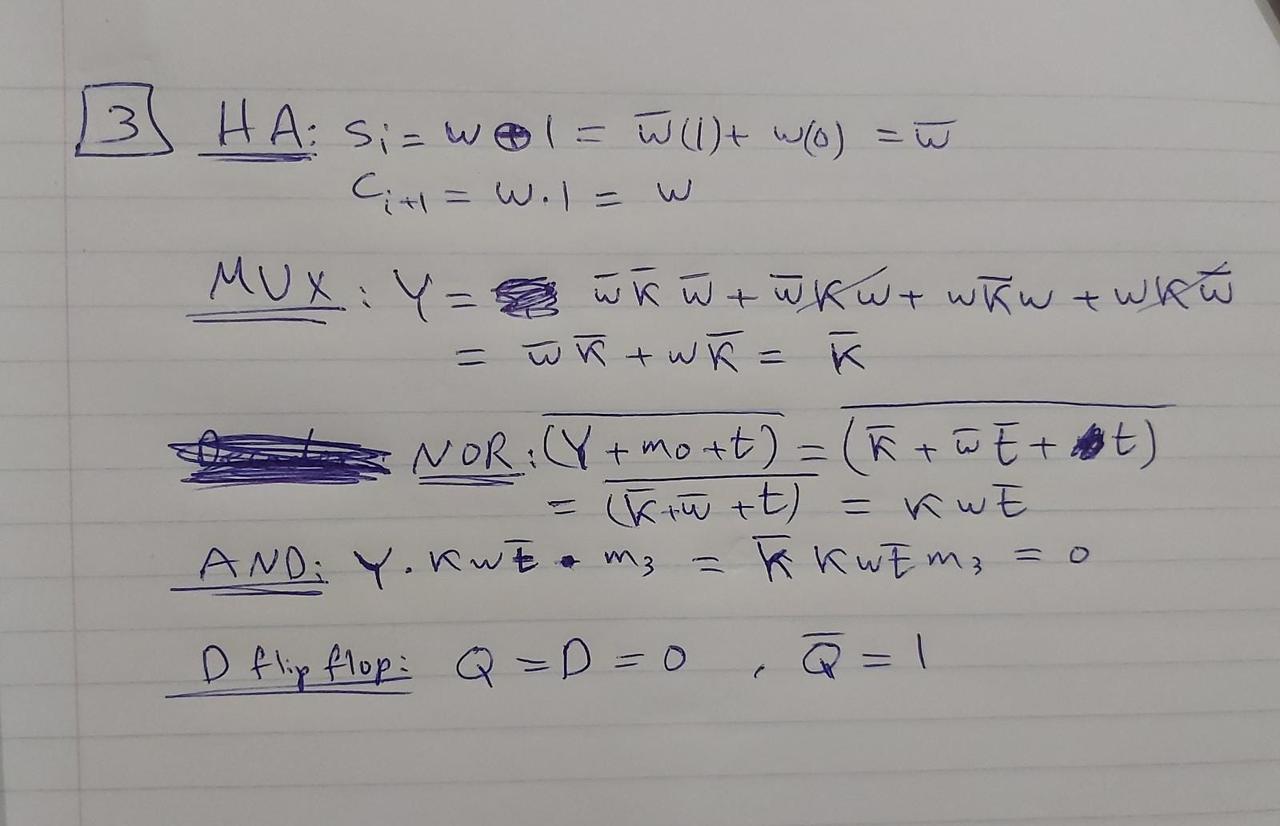 3 HA: Si = w ⊕ 1 = w̅(1) + w(0) = w̅
Ci+1 = w.1 = w
MUX: Y = w̅ K̅ w̅ + w̅ K w + w K̅ w + w K w̅
= w̅ K̅ + w K̅ = K̅
NOR: (Y + m0 + t)̅ = (K̅ + w̅ t̅ + t)̅
= (K̅ + w̅ + t)̅ = K w t̅
AND: Y . K w t̅ . m3 = K̅ K w t̅ m3 = 0
D flip flop: Q = D = 0 , Q̅ = 1